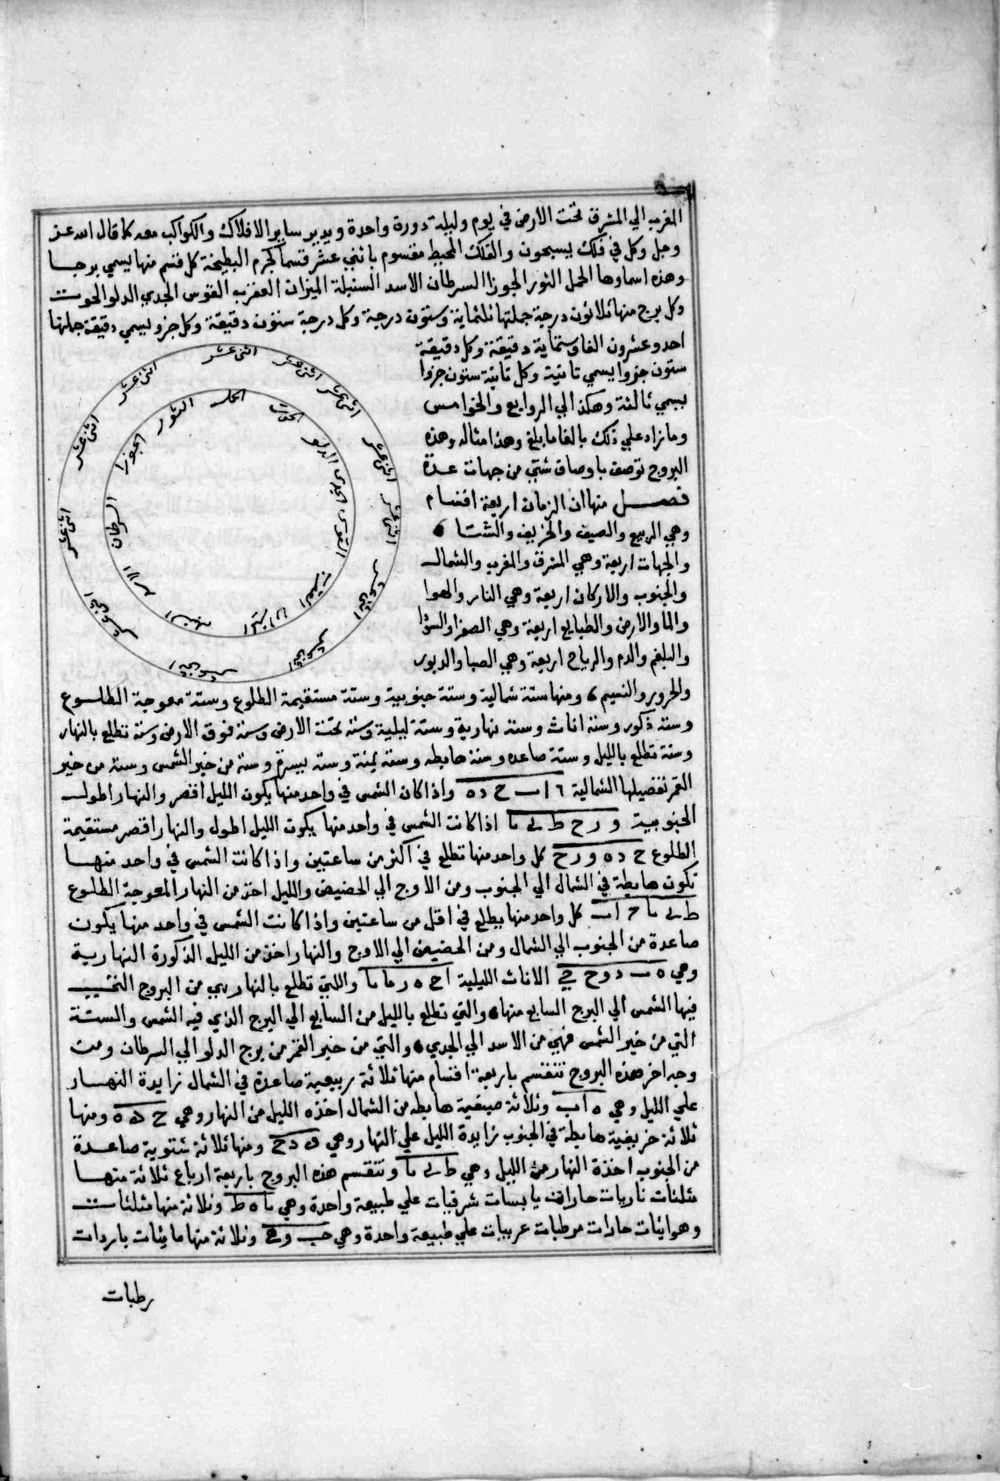 المغرب الي المشرق تحت الارض في يوم وليلة دورة واحدة ويدير ساير الافلاك والكواكب معه كما قال الله عز
وجل وكل في فلك يسبحون والفلك المحيط مقسوم باثني عشر قسما كحزم البطيخة كل قسم منها يسمي برجا
وهذه اسماوها الحمل الثور الجوزا السرطان الاسد السنبلة الميزان العقرب القوس الجدي الدلو الحوت
وكل برج منها ثلاثون درجة جملتها ثلثماية وستون درجة وكل درجة ستون دقيقة وكل جزو يسمي دقيقة جملتها
احد وعشرون الفا وستماية دقيقة وكل دقيقة
ستون جزوا يسمي ثانية وكل ثانية ستون جزوا
يسمي ثالثة وهكذا الي الروابع والخوامس
وما زاد علي ذلك بالغا ما بلغ وهذا مثاله وهذه
البروج توصف باوصاف شتي من جهات عدة
فصل منها ان الزمان اربعة اقسام
وهي الربيع والصيف والخريف والشتا
والجهات اربعة وهي المشرق والمغرب والشمال
والجنوب والاركان اربعة وهي النار والهوا
والما والارض والطبايع اربعة وهي الصفرا والسودا
والبلغم والدم والرياح اربعة وهي الصبا والدبور
والحرور والنسيم ومنها ستة شمالية وستة جنوبية وستة مستقيمة الطلوع وستة معوجة الطلوع
وستة ذكور وستة اناث وستة نهارية وستة ليلية وستة تحت الارض وستة فوق الارض وستة تطلع بالنهار
وستة تطلع بالليل وستة صاعده وستة هابطه وستة يمنة وستة يسرة وستة من حيز الشمس وستة من حيز
القمر تفضيلها الشمالية واذا كان الشمس في واحد منها يكون الليل اقصر والنهار اطول
الجنوبية و ز ح ط ى يا اذا كانت الشمس في واحد منها يكون الليل اطول والنهار اقصر مستقيمة
الطلوع كل واحد منها تطلع في اكثر من ساعتين واذا كانت الشمس في واحد منها
تكون هابطة في الشمال الي الجنوب ومن الاوج الي الحضيض والليل اخذ من النهار المعوجة الطلوع
كل واحد منها يطلع في اقل من ساعتين واذا كانت الشمس في واحد منها يكون
صاعدة من الجنوب الي الشمال ومن الحضيض الي الاوج والنهار اخذ من الليل الذكورة النهارية
وهي الاناث الليلية واللتي تطلع بالنهار هي من البروج التي
فيها الشمس الي البرج السابع منها والتي تطلع بالليل من السابع الي البرج الذي فيه الشمس والستة
التي من حيز الشمس فهي من الاسد الي الجدي والتي من حيز القمر من برج الدلو الي السرطان ومن
وجه اخر هذه البروج تنقسم باربعة اقسام منها ثلاثة ربيعية صاعدة في الشمال زايدة النهار
علي الليل وهي ه ا ب وثلاثة صيفية هابطه من الشمال اخذه الليل من النهار وهي ومنها
ثلاثة خريفية هابطة في الجنوب زايدة الليل علي النهار وهي ومنها ثلاثة شتوية صاعدة
من الجنوب اخذة النهار من الليل وهي ط ى يا وتنقسم هذه البروج باربعة ارباع ثلاثة منها
مثلثات ناريات حارات يابسات شرقيات علي طبيعة واحدة وهي وثلاثة منها مثلثات
وهوائيات حارات مرطبات غربيات علي طبيعة واحدة وهي وثلاثة منها مائيات باردات
رطبات
اثنى عشر
اثنى عشر
اثنى عشر
اثنى عشر
اثنى عشر
اثنى عشر
اثنى عشر
اثنى عشر
اثنى عشر
اثنى عشر
اثنى عشر
اثنى عشر
الحمل
الثور
الجوزا
السرطان
الاسد
السنبلة
الميزان
العقرب
القوس
الجدى
الدلو
الحوت